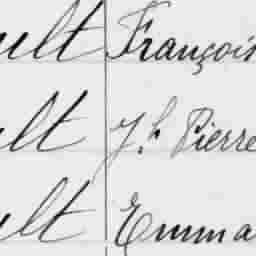 ult François
ult Jh Pierre
ult Emma